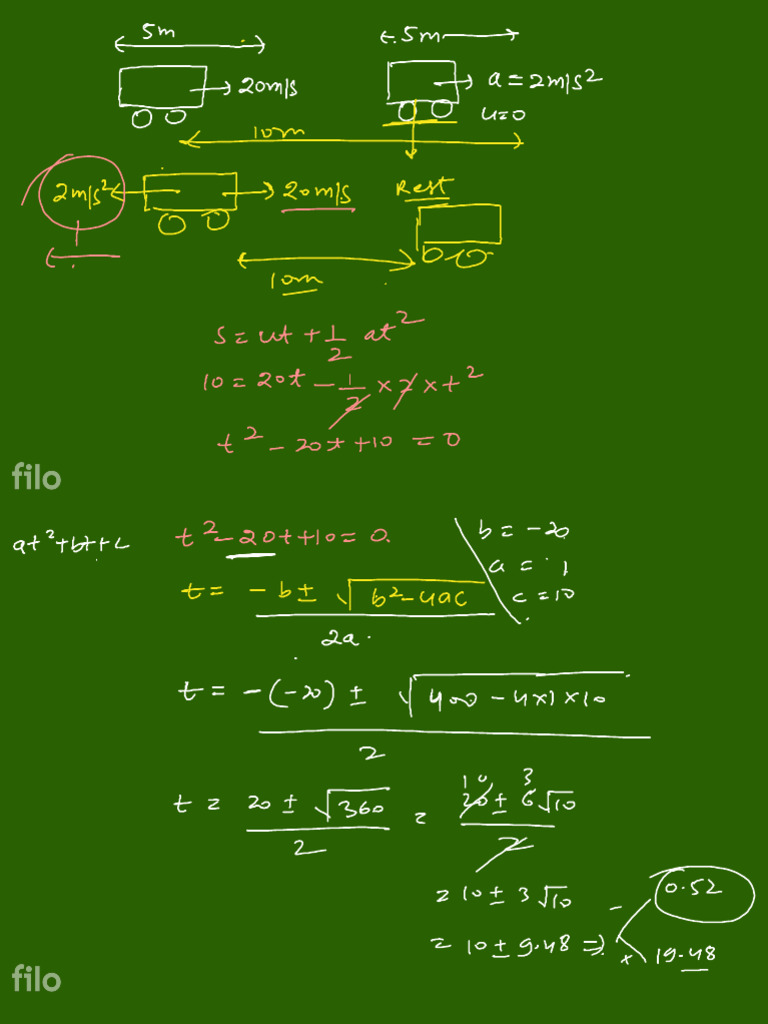 5m 5m
20m/s a = 2m/s²
u=0
10m
2m/s² 20m/s Rest
10m
S = ut + 1/2 at²
10 = 20t - 1/2 x 2 x t²
t² - 20t + 10 = 0
filo
at² + bt + c t² - 20t + 10 = 0. b = -20
a = 1
t = -b ± √b² - 4ac / 2a. c = 10
t = -(-20) ± √400 - 4x1x10 / 2
t = 20 ± √360 / 2 = 20 ± 6√10 / 2 10 3
= 10 ± 3√10 0.52
= 10 ± 9.48 ⇒ x 19.48
filo